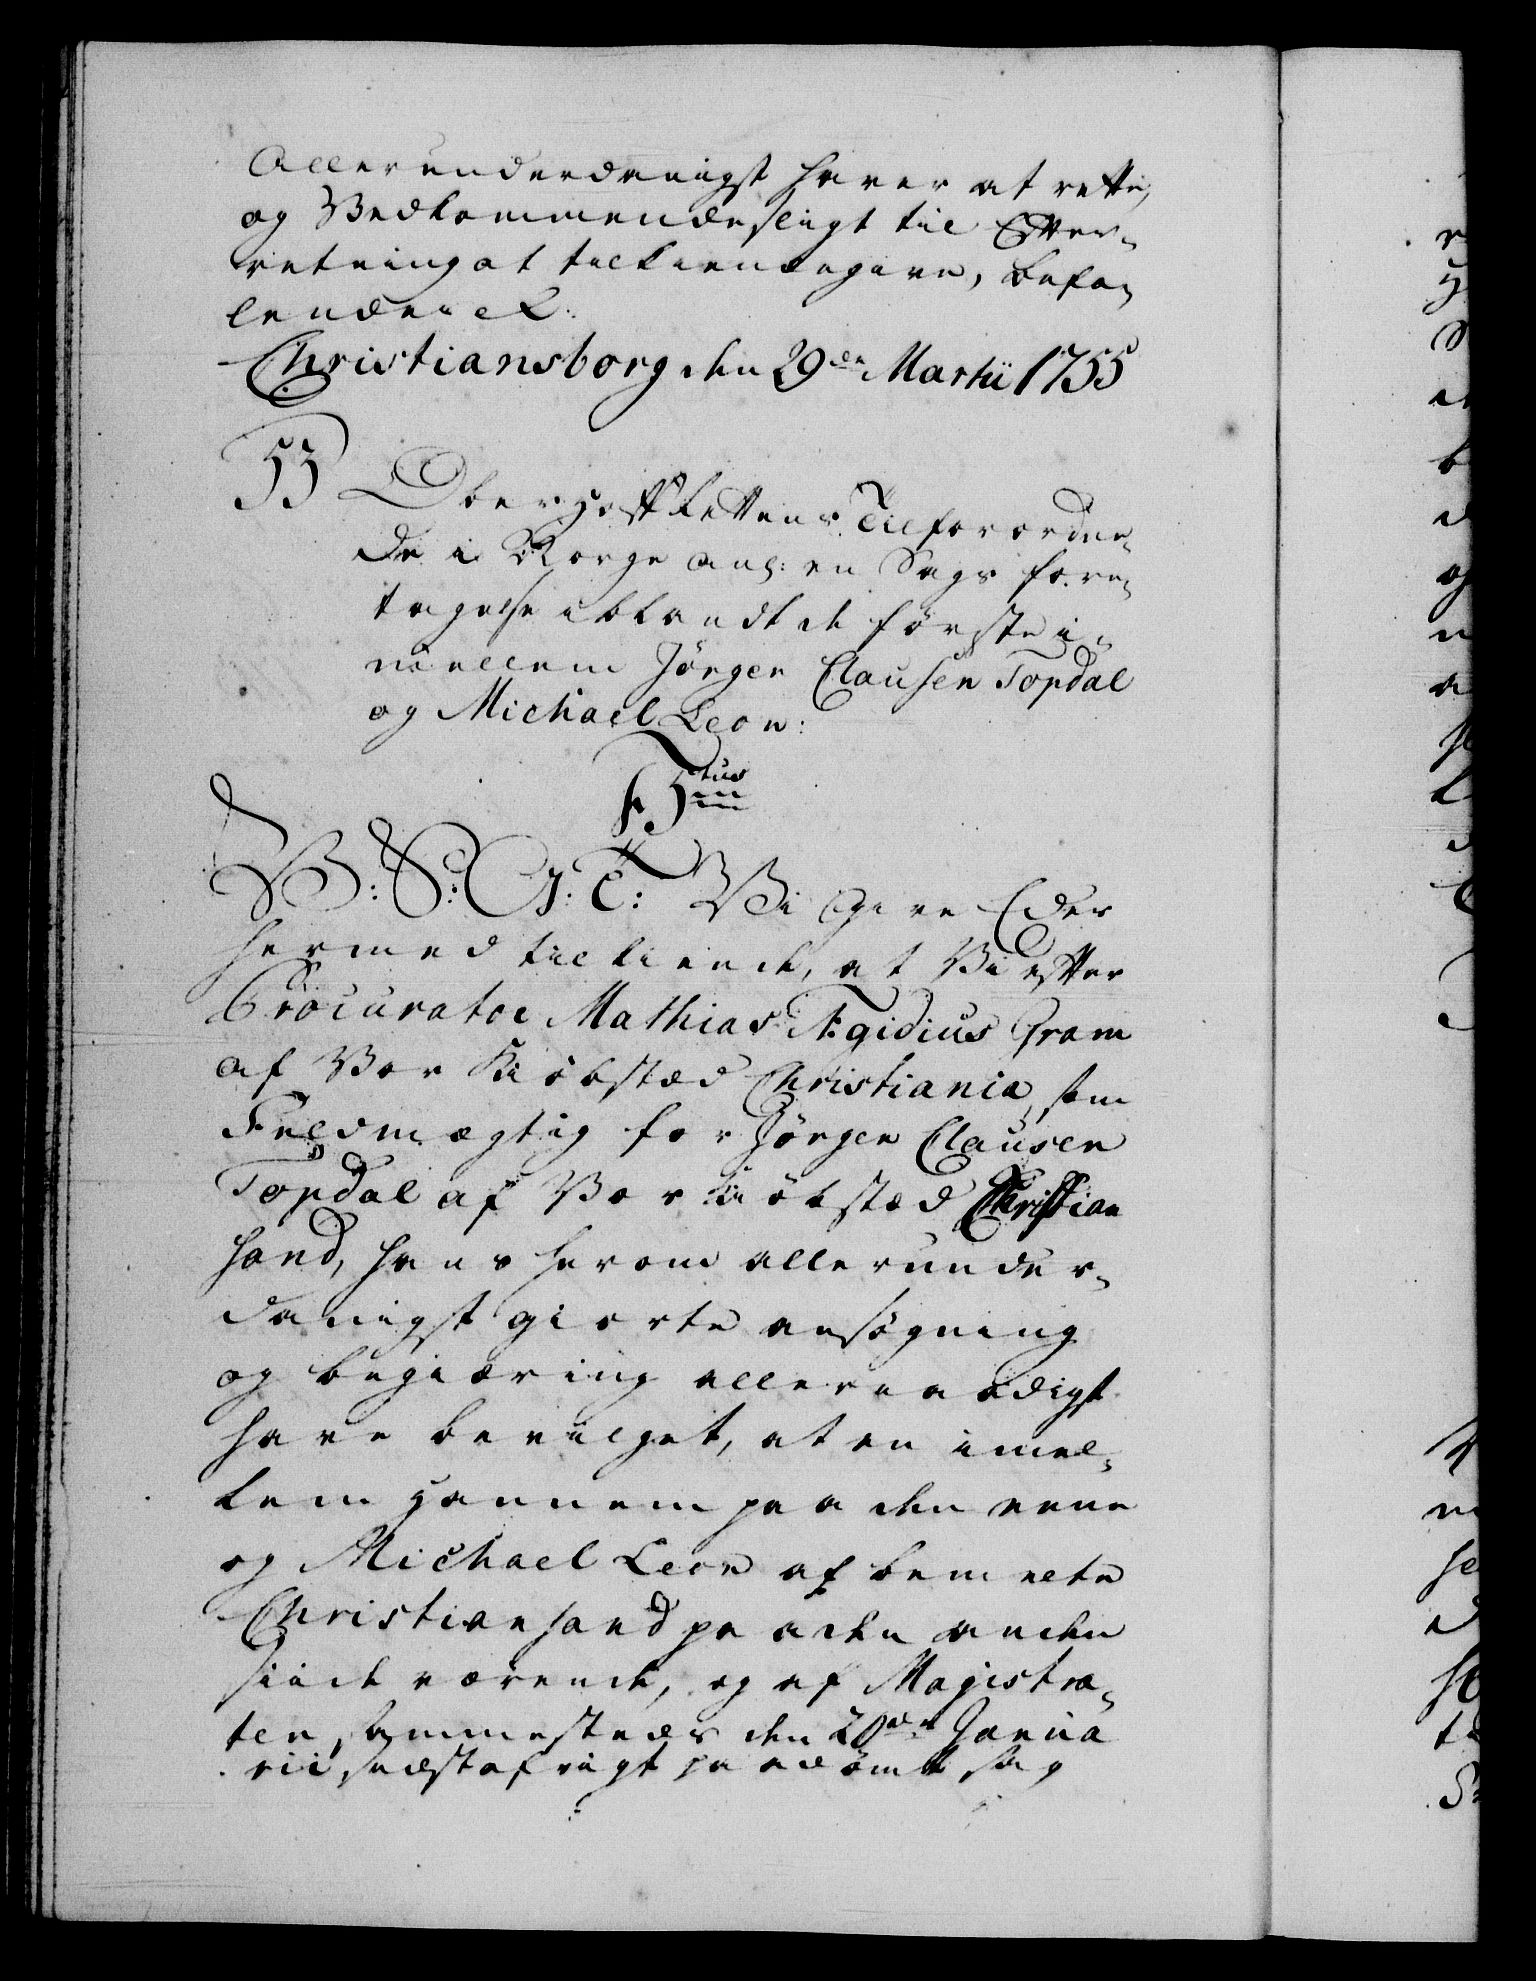 Allerunderdanigst haver at rette,
og Vedkommende sligt til Efter-
retning at tilkiendegive, befa-
lende i el.
Christiansborg den 29de Martii 1755
53
Oberhoff Rettens Tilforordne-
de i Norge anl: en Sags fore-
tagelse iblandt de første i-
mellem Jörgen Clausen Topdal
og Michael Leon:
F 5tus
V: S: G: T: Vi Give Eder
hermed tilkiende, at Vi efter
Procurator Mathias Ægidius Gram
af Vor Kiöbstæd Christiania, som
Fuldmægtig for Jörgen Clausen
Topdal af Vor Kiöbstæd Christian
sand, hans herom allerunder-
danigst giorte ansøgning
og begiæring allernaadigst
have bevilget, at en imel-
lem hannem paa den eene
og Michael Leon af bemelte
Christiansand paa den anden
siide værende, og af Magistra-
ten sammesteds den 20de Janua
rii sidstafvigt paadömt sag